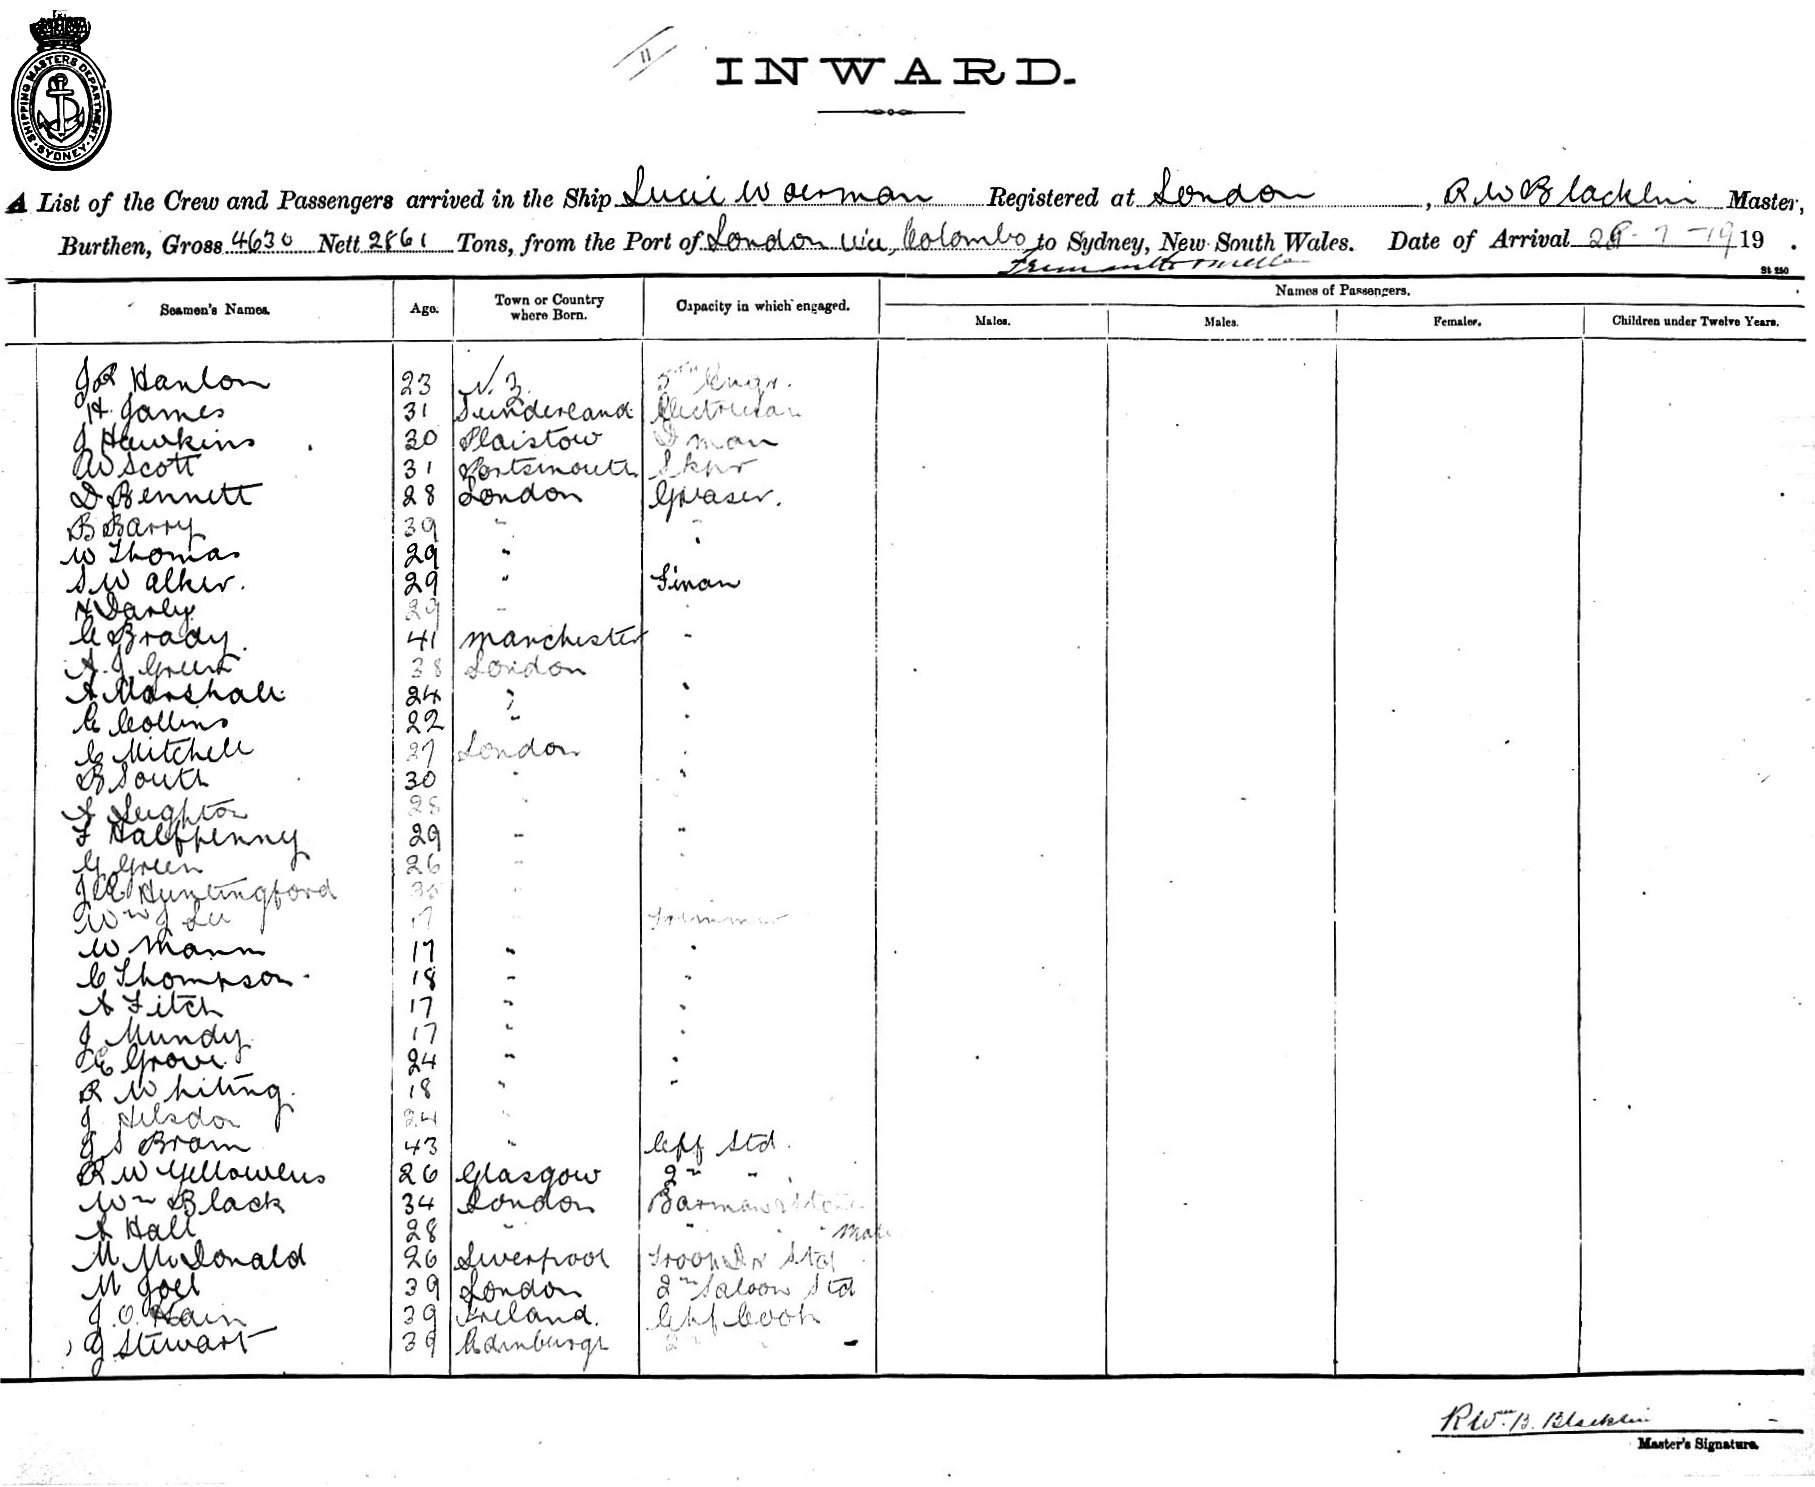 SHIPPING MASTERS DEPARTMENT
SYDNEY
11
INWARD.
A List of the Crew and Passengers arrived in the Ship Lucie Woerman Registered at London, R W Blacklin Master,
Burthen, Gross 4630 Nett 2861 Tons, from the Port of London via Colombo to Sydney, New South Wales. Date of Arrival -7-19 19 .
Fremantle
St 250
Seamen's Names. Age. Town or Country where Born. Capacity in which engaged. Names of Passengers.
Males. Males. Females. Children under Twelve Years.
Hanlon 23 N.Z. 5th Engr.
H James 31 Sunderland Electrician
J Hawkins 30 Plaistow man
W Scott 31 Portsmouth Skpr
D Bennett 28 London Greaser.
B Barry 39 " "
W Thomas 29 " "
S Walker. 29 " Fiman
H Darley 29 "
C Brady. 41 Manchester "
A. J. Green 38 London
A Marshall 24 " "
C Collins 22 " "
C Mitchell 27 London "
B South 30 " "
A Leighton 28 " "
F Halfpenny 29 " "
G Green 26 " "
J C Huntingford " 
Wm J Lee 17 " Trimmer
W Mann 17 " "
C Thompson 18 " "
A Fitch 17 " "
J Mundy 17 " "
E Grove 24 " "
R Whiting. 18 " "
J Hilsdon 24 "
J S Bram 43 " Chf Std.
R W Yellowens 26 Glasgow 2n "
Wm Black 34 London Barman
A Hall 28 " " "
M McDonald 26 Liverpool Troop Std
M Joel 39 London 2nd Saloon Std
J. O. Hain 39 Ireland. Chf Cook
J Stewart 39 Edinburgh 2n "
R Wm. B. Blacklin
Master's Signature.